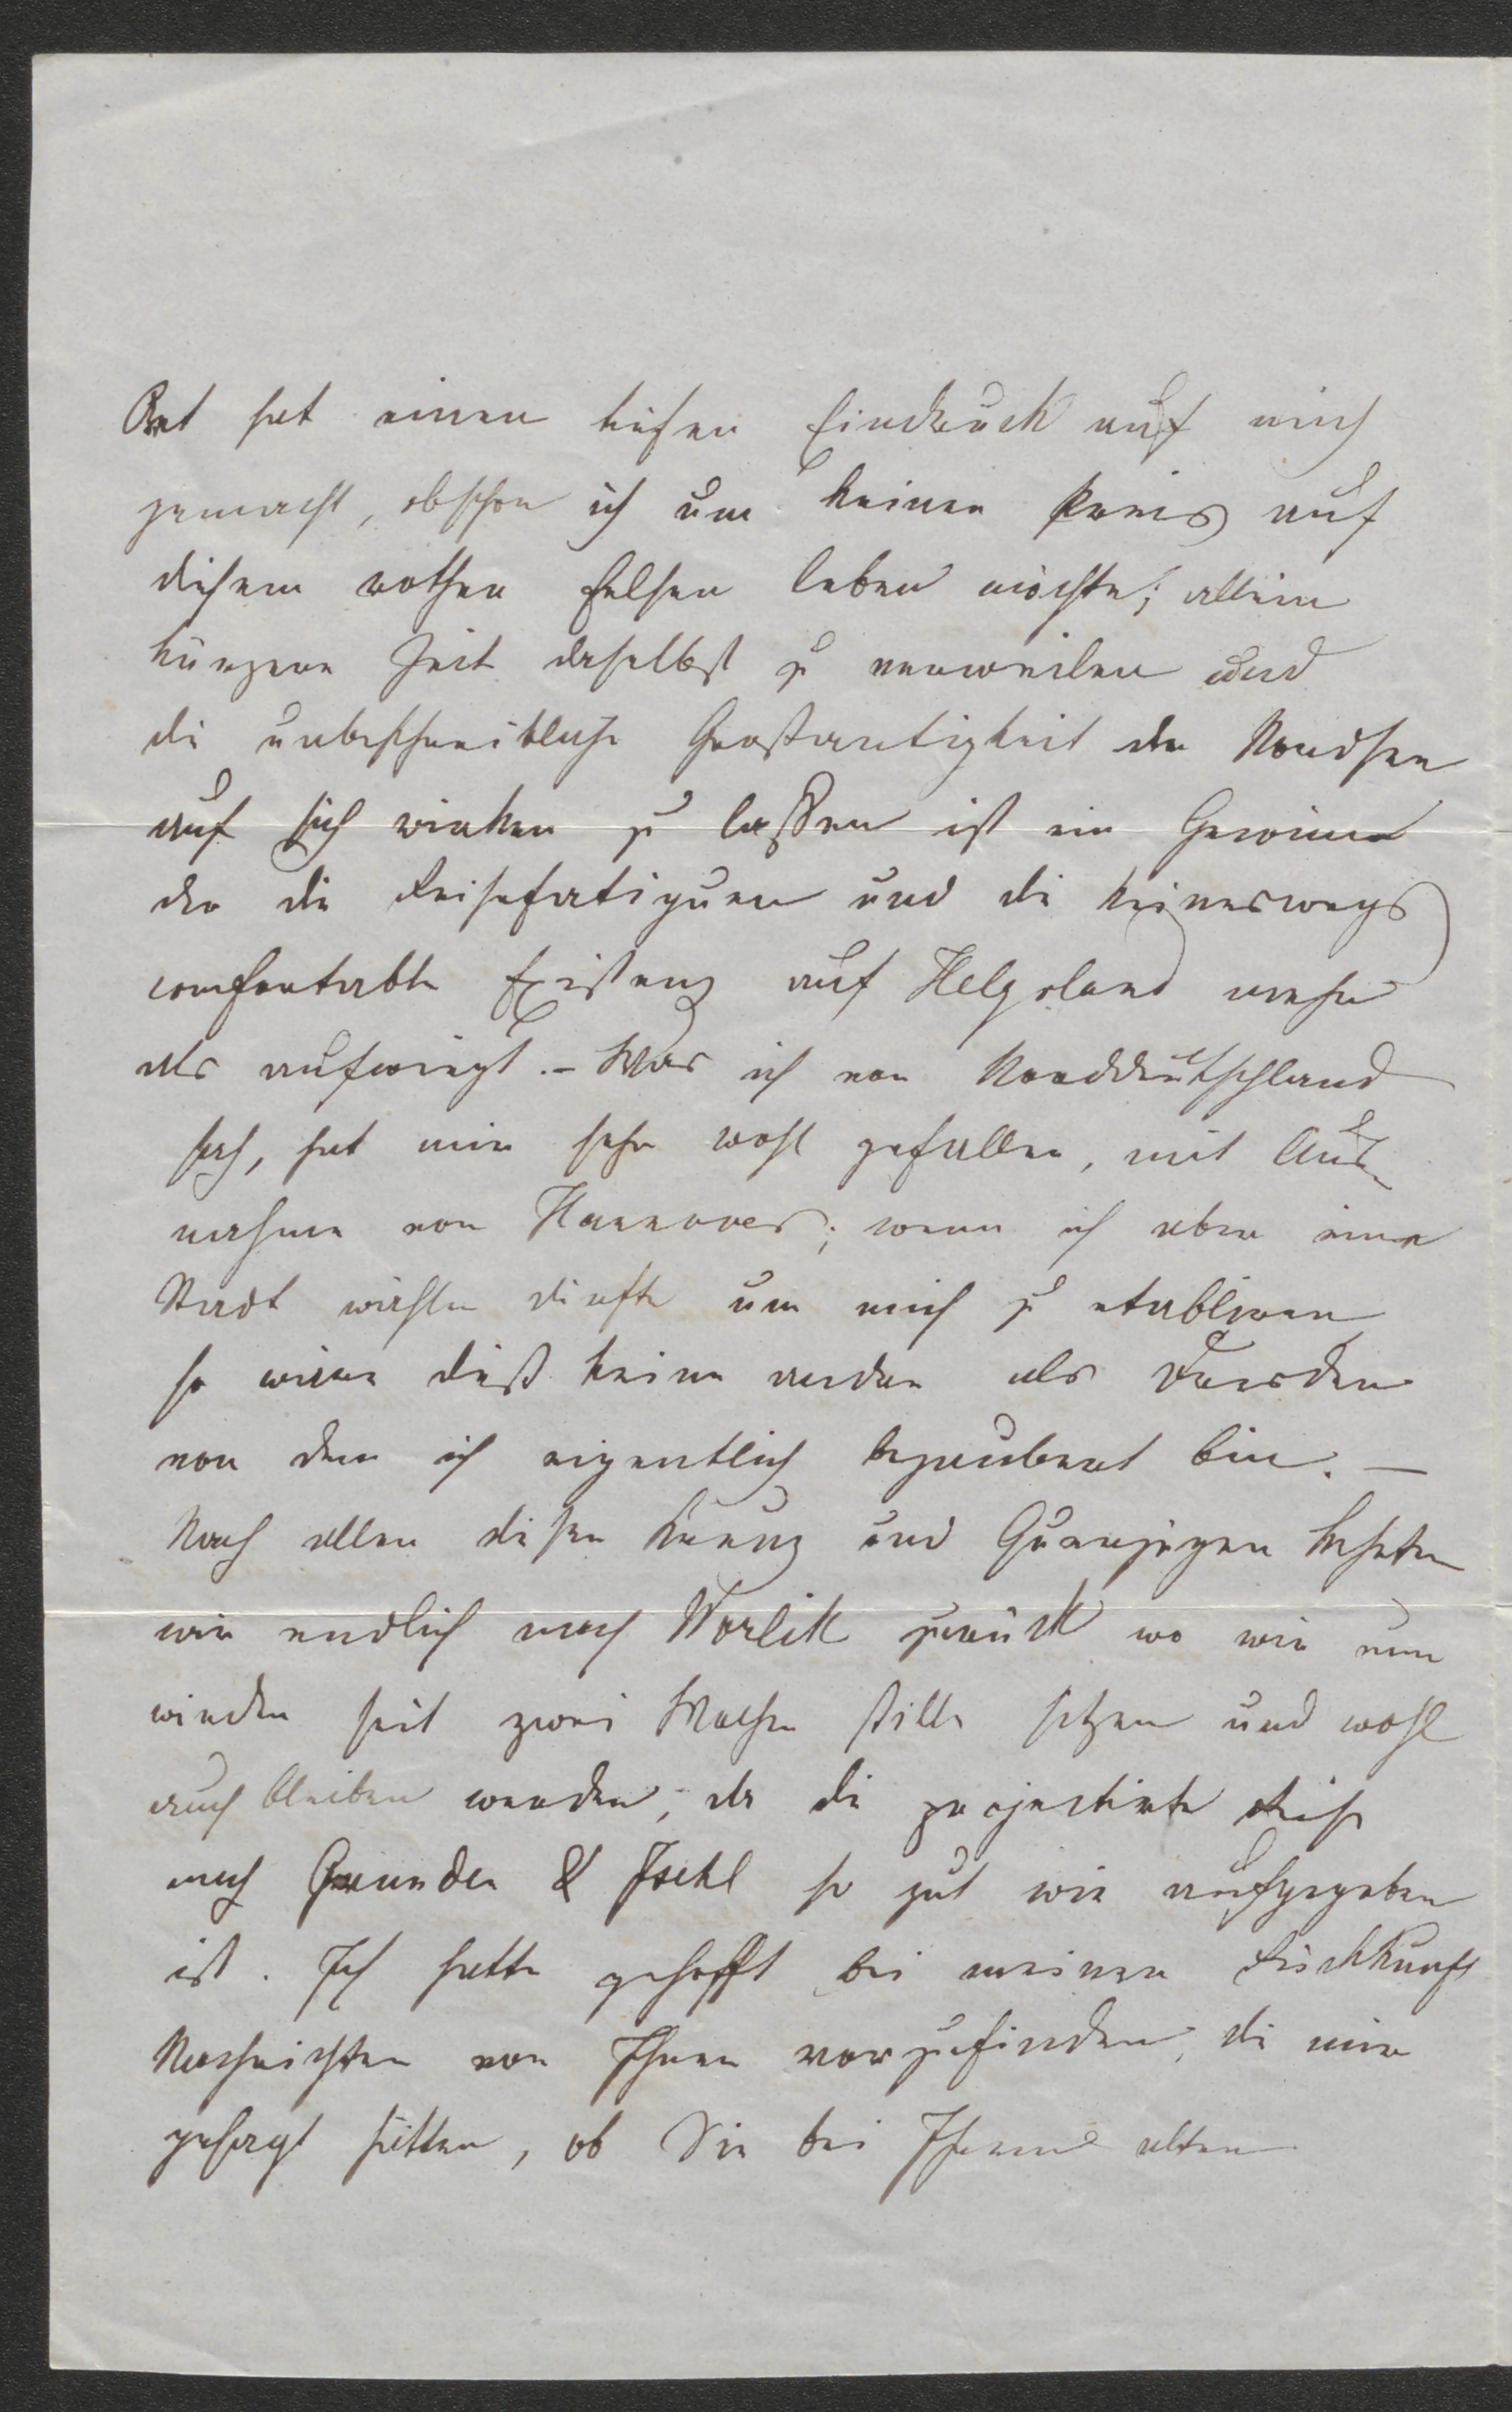 Ort hat einen tiefen Eindruck auf mich
gemacht, obschon ich um keinen Preis auf
diesem rothen Felsen leben möchte; allein
kürzere Zeit daselbst zu verweilen und
die unbeschreibliche Großartigkeit der Nordsee
auf sich wirken zu laßen ist ein Gewinn
der die Reisefatiguen und die keineswegs
comfortable Existenz auf Helgoland mehr
als aufwiegt. – Was ich von Norddeutschland
sah, hat mir sehr wohl gefallen, mit Aus-
nahme von Hannover; wenn ich aber eine
Stadt wählen dürfte um mich zu etabliren
so wäre dieß keine andere als Dresden
von dem ich eigentlich bezaubert bin. –
Nach allen diesen Kreuz und Querzügen kehrten
wir endlich nach Worlik zurück wo wir nun
wieder seit zwei Wochen stille sitzen und wohl
auch bleiben werden, da die projectirte Reise
nach Gmunden & Ischl so gut wie aufgegeben
ist. Ich hatte gehofft bei meiner Rückkunft
Nachrichten von Ihnen vorzufinden, die mir
gesagt hätten, ob Sie bei Ihrem alten